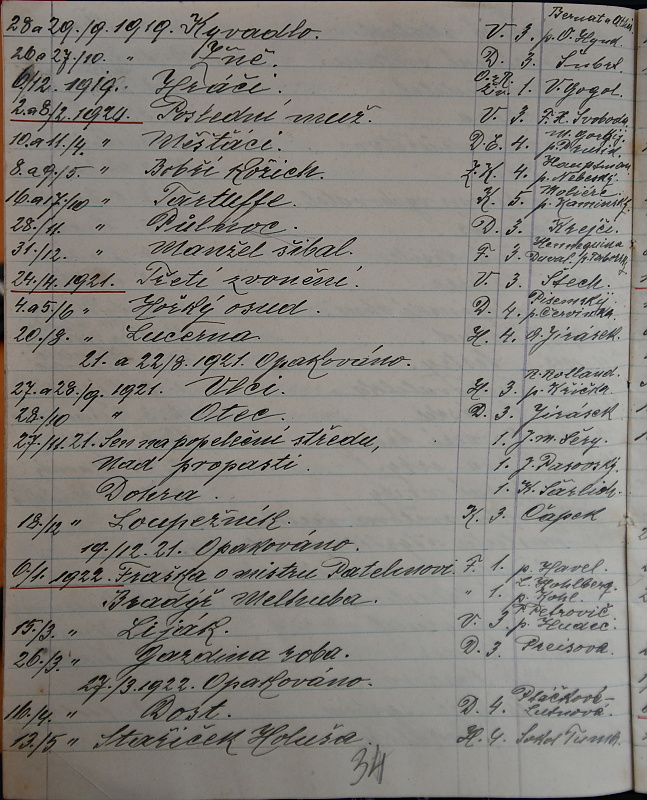 Bernat "
28a29./9.1919. Kyvadlo. V. 3. p. O. Hynd.
26a27/10. " Žně. D. 3. Šubrt.
6/12. 1919. Hráči. 1. V. Gogol.
2.a8/2.1920. Poslední muž. V. 3. F. X. Svoboda
10.a11/4. " Měšťáci. D.Č. 4. M. Gorkij
8.a9./5. " Bobří kožich. Z.K. 4. Hauptman p. Nebeský.
16.a17./10 " Tartuffe. K. 5. Moliére p. Kaminský.
28./11. " Půlnoc. D. 3. Krejčí.
31./12. " Manžel šibal. F. 3. Hennequina Duval. p. Táborský
24./4. 1921. Třetí zvonění. V. 3. Štech.
4.a5/6 " Hořký osud. D. 4. Pisemský. p. Červinka.
20./8. " Lucerna H. 4. A. Jirásek.
21. a 22/8. 1921. Opakováno.
27.a28./9. 1921. Vlci. H. 3. R. Rolland. p. Křička.
28./10 " Otec. D. 3. Jirásek
27./11.21. Sen na popeleční středu, 1. J.M. Séry.
Nad propastí. 1. J.
Dcera. 1. K.
18./12 " Loupežník. K. 3. Čapek
19./12.21. Opakováno.
6/1. 1922. Fraška o mistru Patelinovi. F. 1. p. Havel.
Bradýř Melhuba. " 1. L. Hohlberg. p. Kohl.
15/3. " Liják. V. 3. P. Petrovič p. Hudec
26./3. " Gazdina roba. D. 3. Preisová.
27./3.1922. Opakováno.
16./4. " Dost. D. 4. Ptáčková-Lutnová.
13./5 " Stařiček Holuša. H. 4. Sokol Tůma.
34